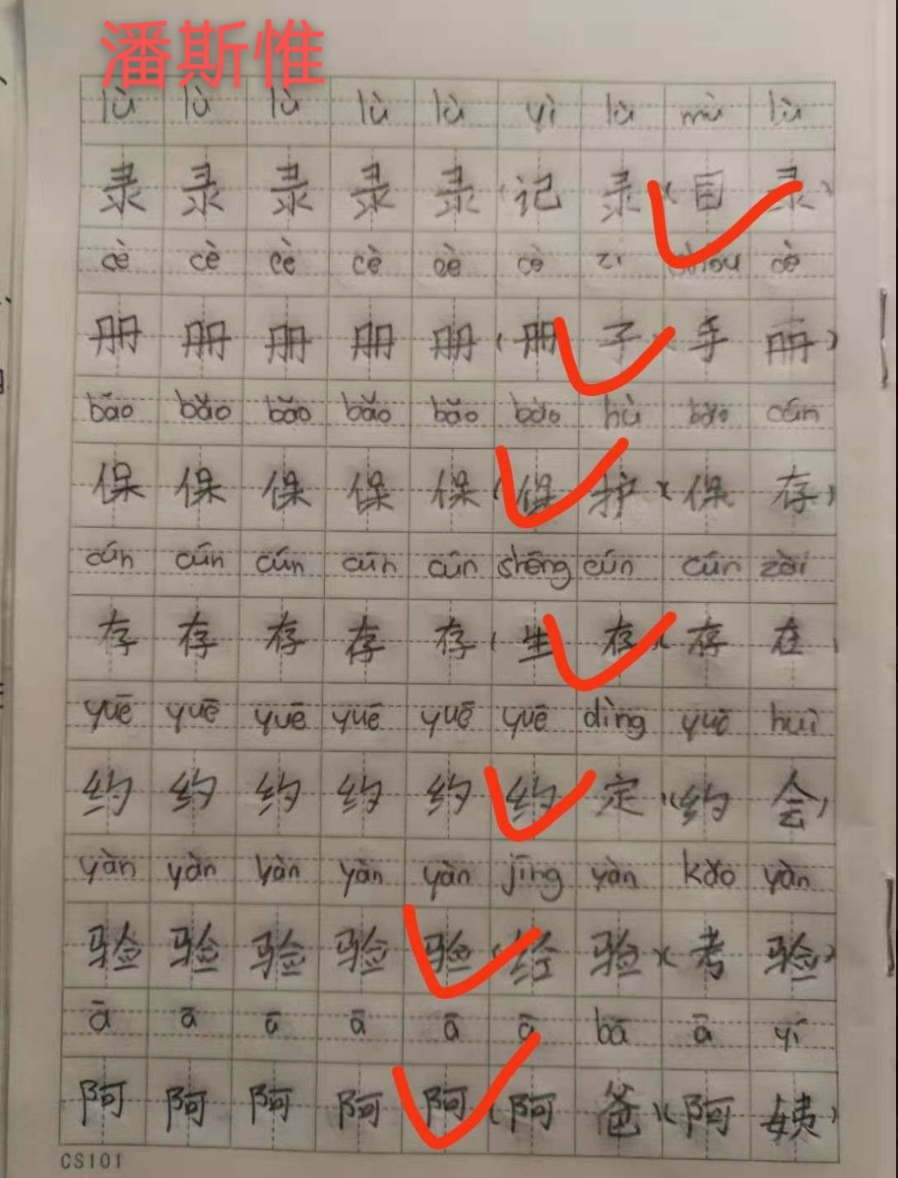 潘斯惟
lù lù lù lù lù yì lù mù lù
录 录 录 录 录 (记 录)(目 录)
cè cè cè cè cè cè zi shǒu cè
册 册 册 册 册 (册 子)(手 册)
bǎo bǎo bǎo bǎo bǎo bǎo hù bǎo cún
保 保 保 保 保 (保 护)(保 存)
cún cún cún cún cún shēng cún cún zài
存 存 存 存 存 (生 存)(存 在)
yuē yuē yuē yuē yuē yuē dìng yuē huì
约 约 约 约 约 (约 定)(约 会)
yàn yàn yàn yàn yàn jīng yàn kǎo yàn
验 验 验 验 验 (经 验)(考 验)
ā ā ā ā ā ā bà ā yí
阿 阿 阿 阿 阿 (阿 爸)(阿 姨)
CS101